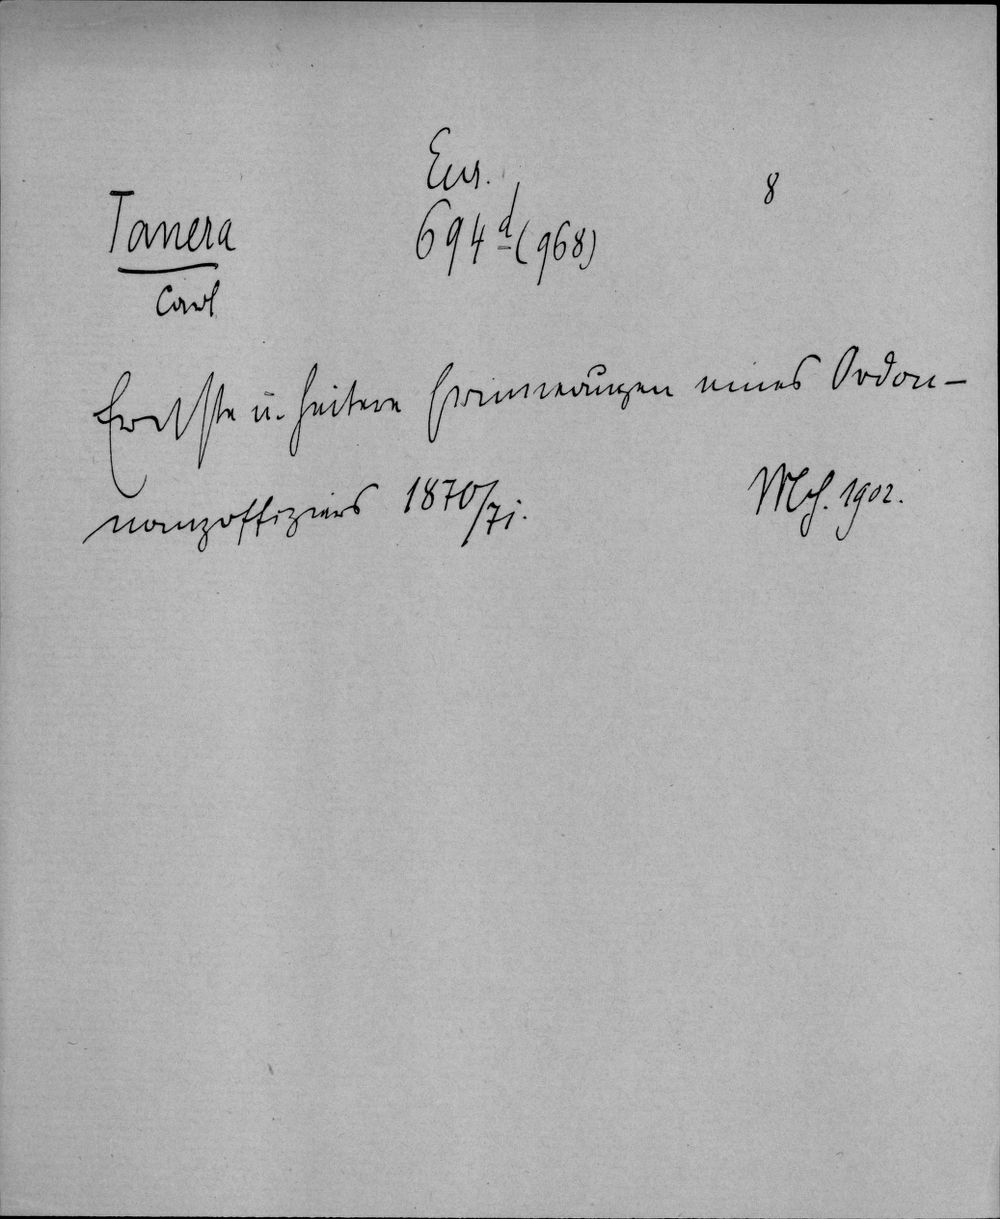 Eur. 8
Tanera 694d (968)
Carl
Ernste u. heitere Erinnerungen eines Ordon-
nanzoffiziers 1870/71. Mch. 1902.